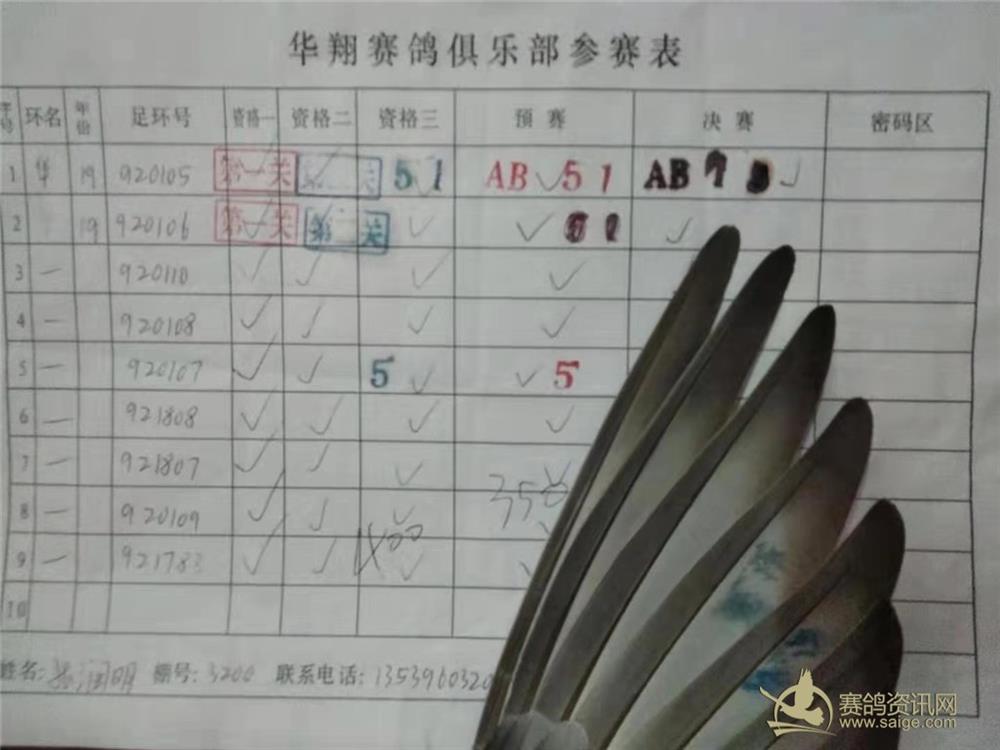 华翔赛鸽俱乐部参赛表
序号 环名 年份 足环号 资格一 资格二 资格三 预赛 决赛 密码区
1 华 19 920105 第一关 关 51 AB 51 AB
2 19 920106 第一关 第 关 51
3 一 920110
4 一 920108
5 一 920107 5 5
6 一 921808
7 一 921807
350
8 一 920109
400
9 一 921783
10
姓名: 润明 棚号: 3200 联系电话: 1353960320
赛鸽资讯网
www.saige.com